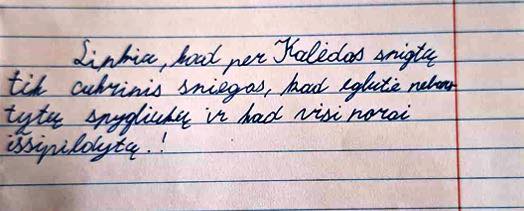 Linkiu, kad per Kalėdas snigtų
tik cukrinis sniegas, kad eglutė nebars
tytų spygliukų ir kad visi norai
išsipildytų.!